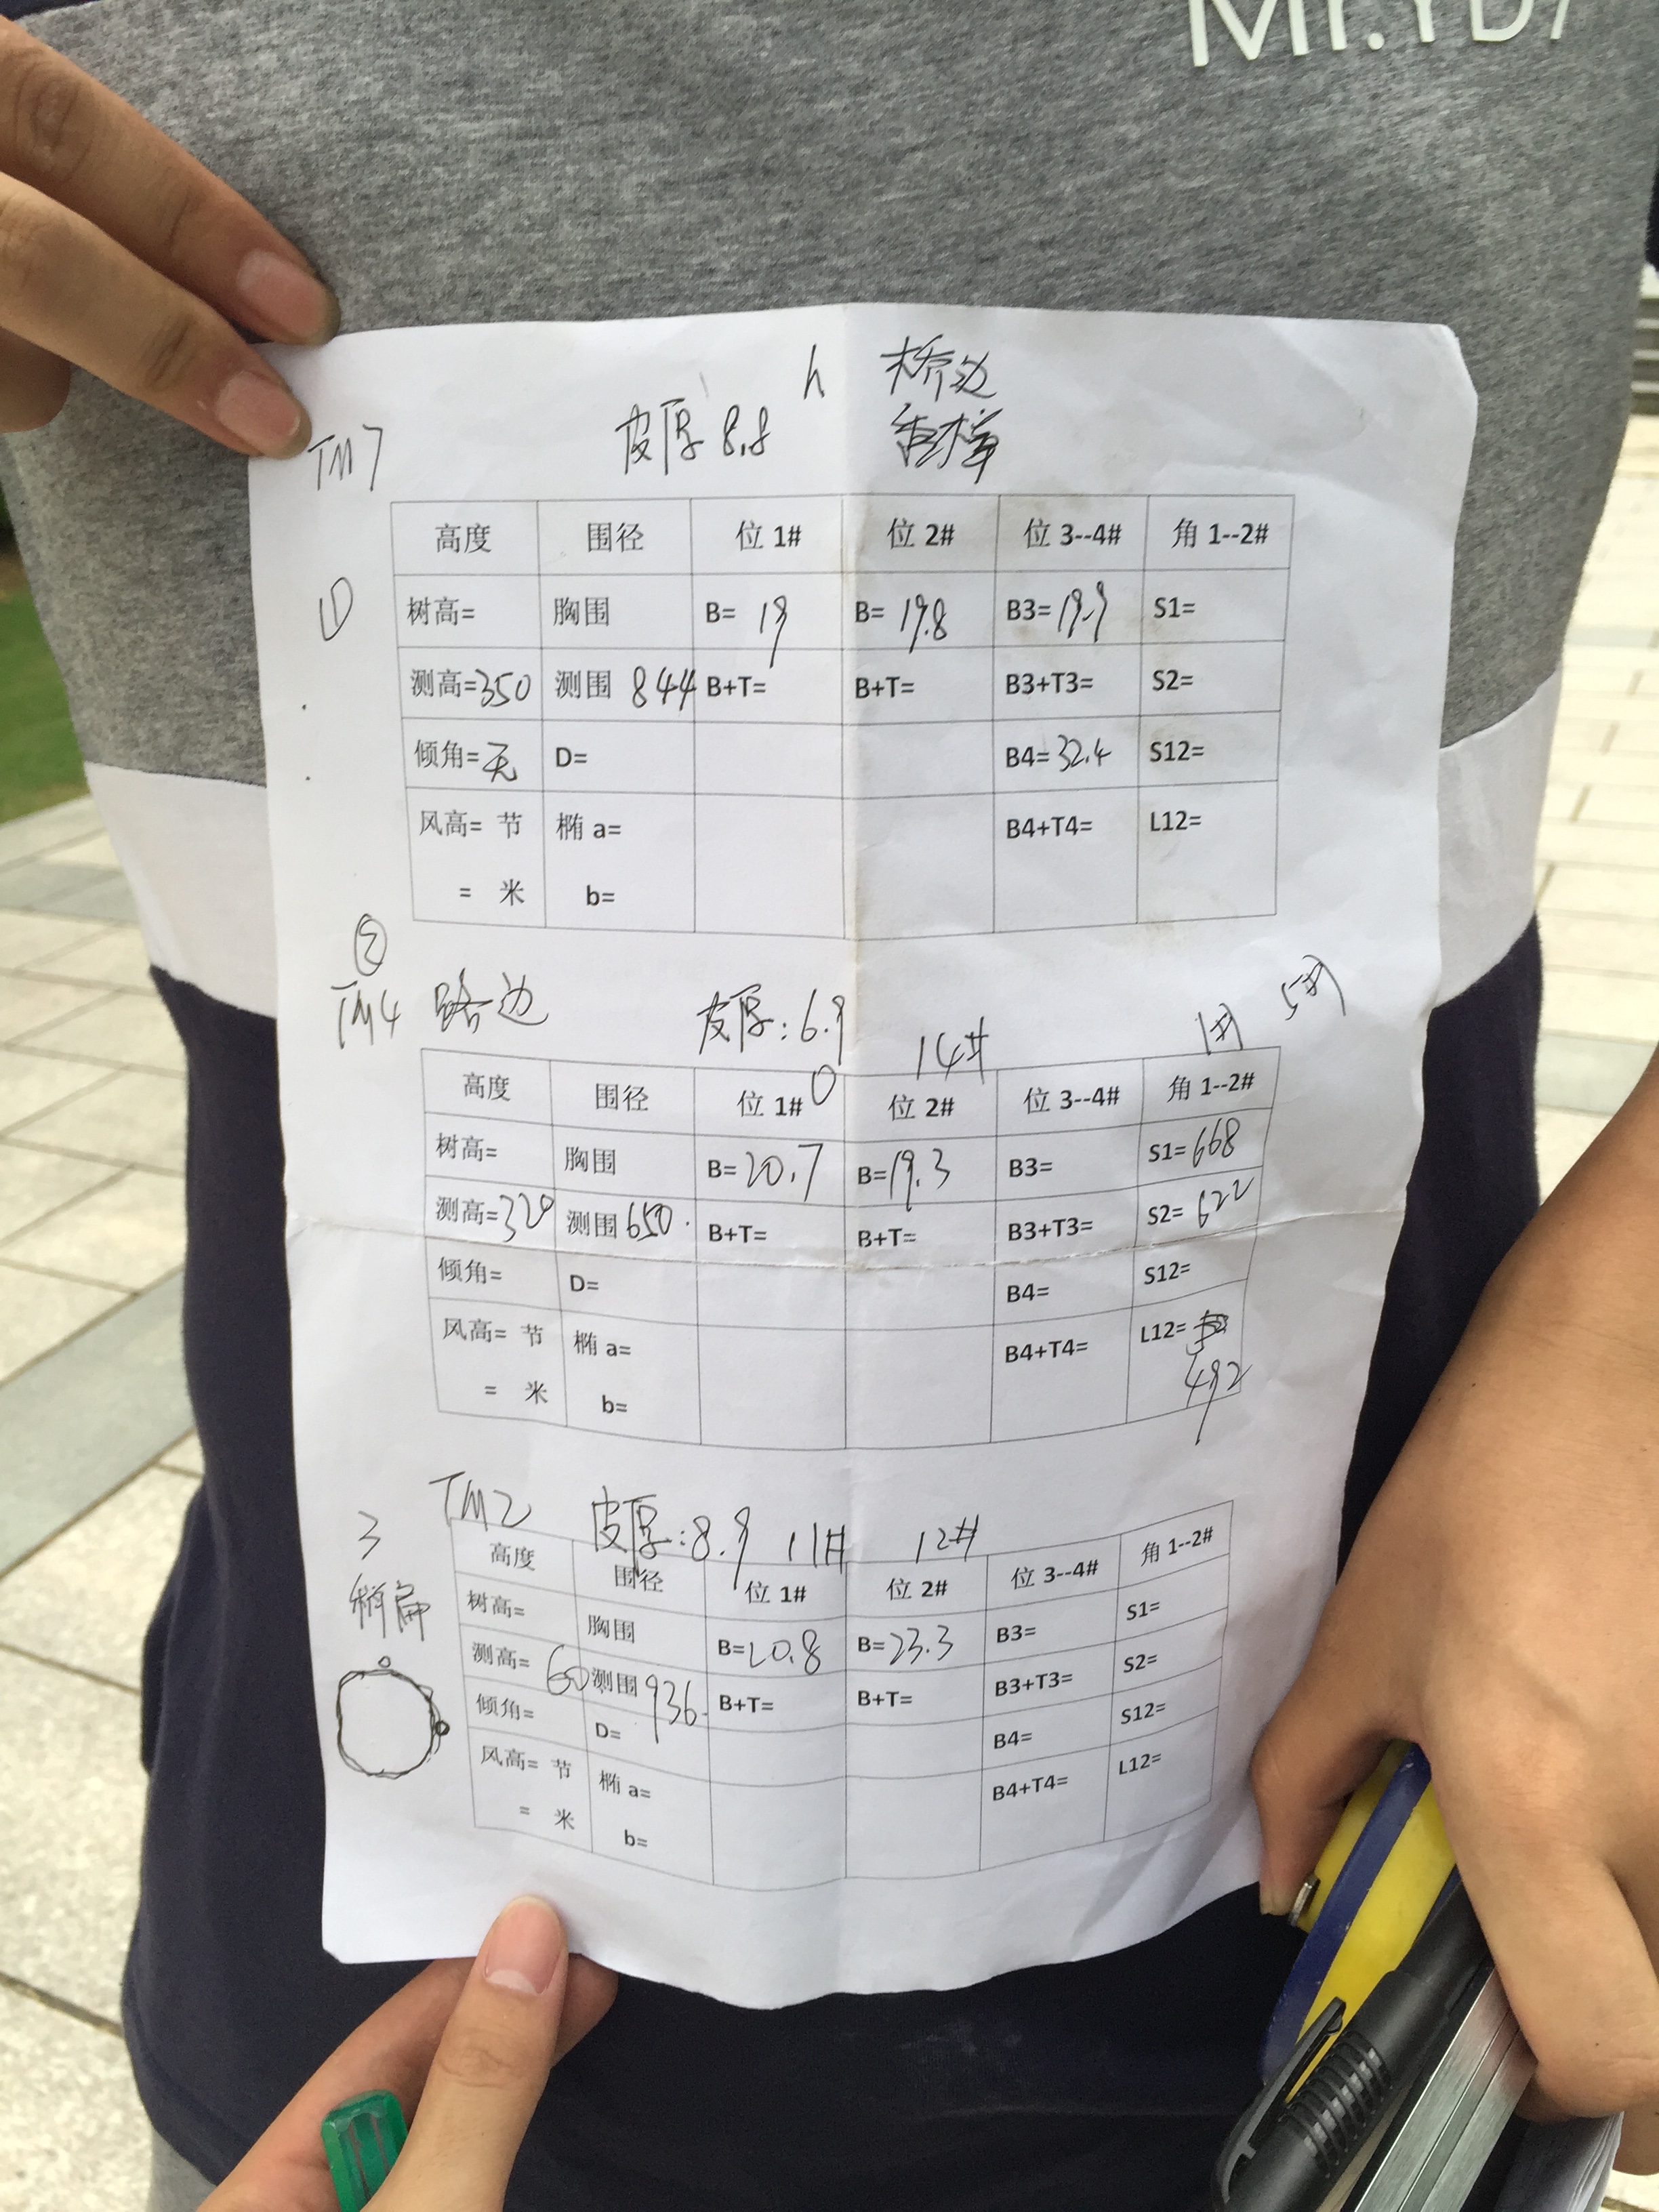 Mr.YD7
h 桥边
TM7 皮厚 8.8 香樟
①
高度 围径 位 1# 位 2# 位 3--4# 角 1--2#
树高= 胸围 B= 19 B= 19.8 B3= 19.9 S1=
测高=350 测围 844 B+T= B+T= B3+T3= S2=
倾角=无 D= B4=32.4 S12=
风高= 节 椭 a= B4+T4= L12=
= 米 b=
②
TM4 路边 皮厚:6.9 14# 1# 5#
高度 围径 位 1# 0 位 2# 位 3--4# 角 1--2#
树高= 胸围 B=20.7 B=19.3 B3= S1=668
测高=320 测围650 B+T= B+T= B3+T3= S2=622
倾角= D= B4= S12=
风高= 节 椭 a= B4+T4= L12=
= 米 b= 492
TM2 皮厚:8.9 11# 12#
3
稍扁
高度 围径 位 1# 位 2# 位 3--4# 角 1--2#
树高= 胸围 B=20.8 B=23.3 B3= S1=
测高=60 测围936 B+T= B+T= B3+T3= S2=
倾角= D= B4= S12=
风高= 节 椭 a= B4+T4= L12=
= 米 b=